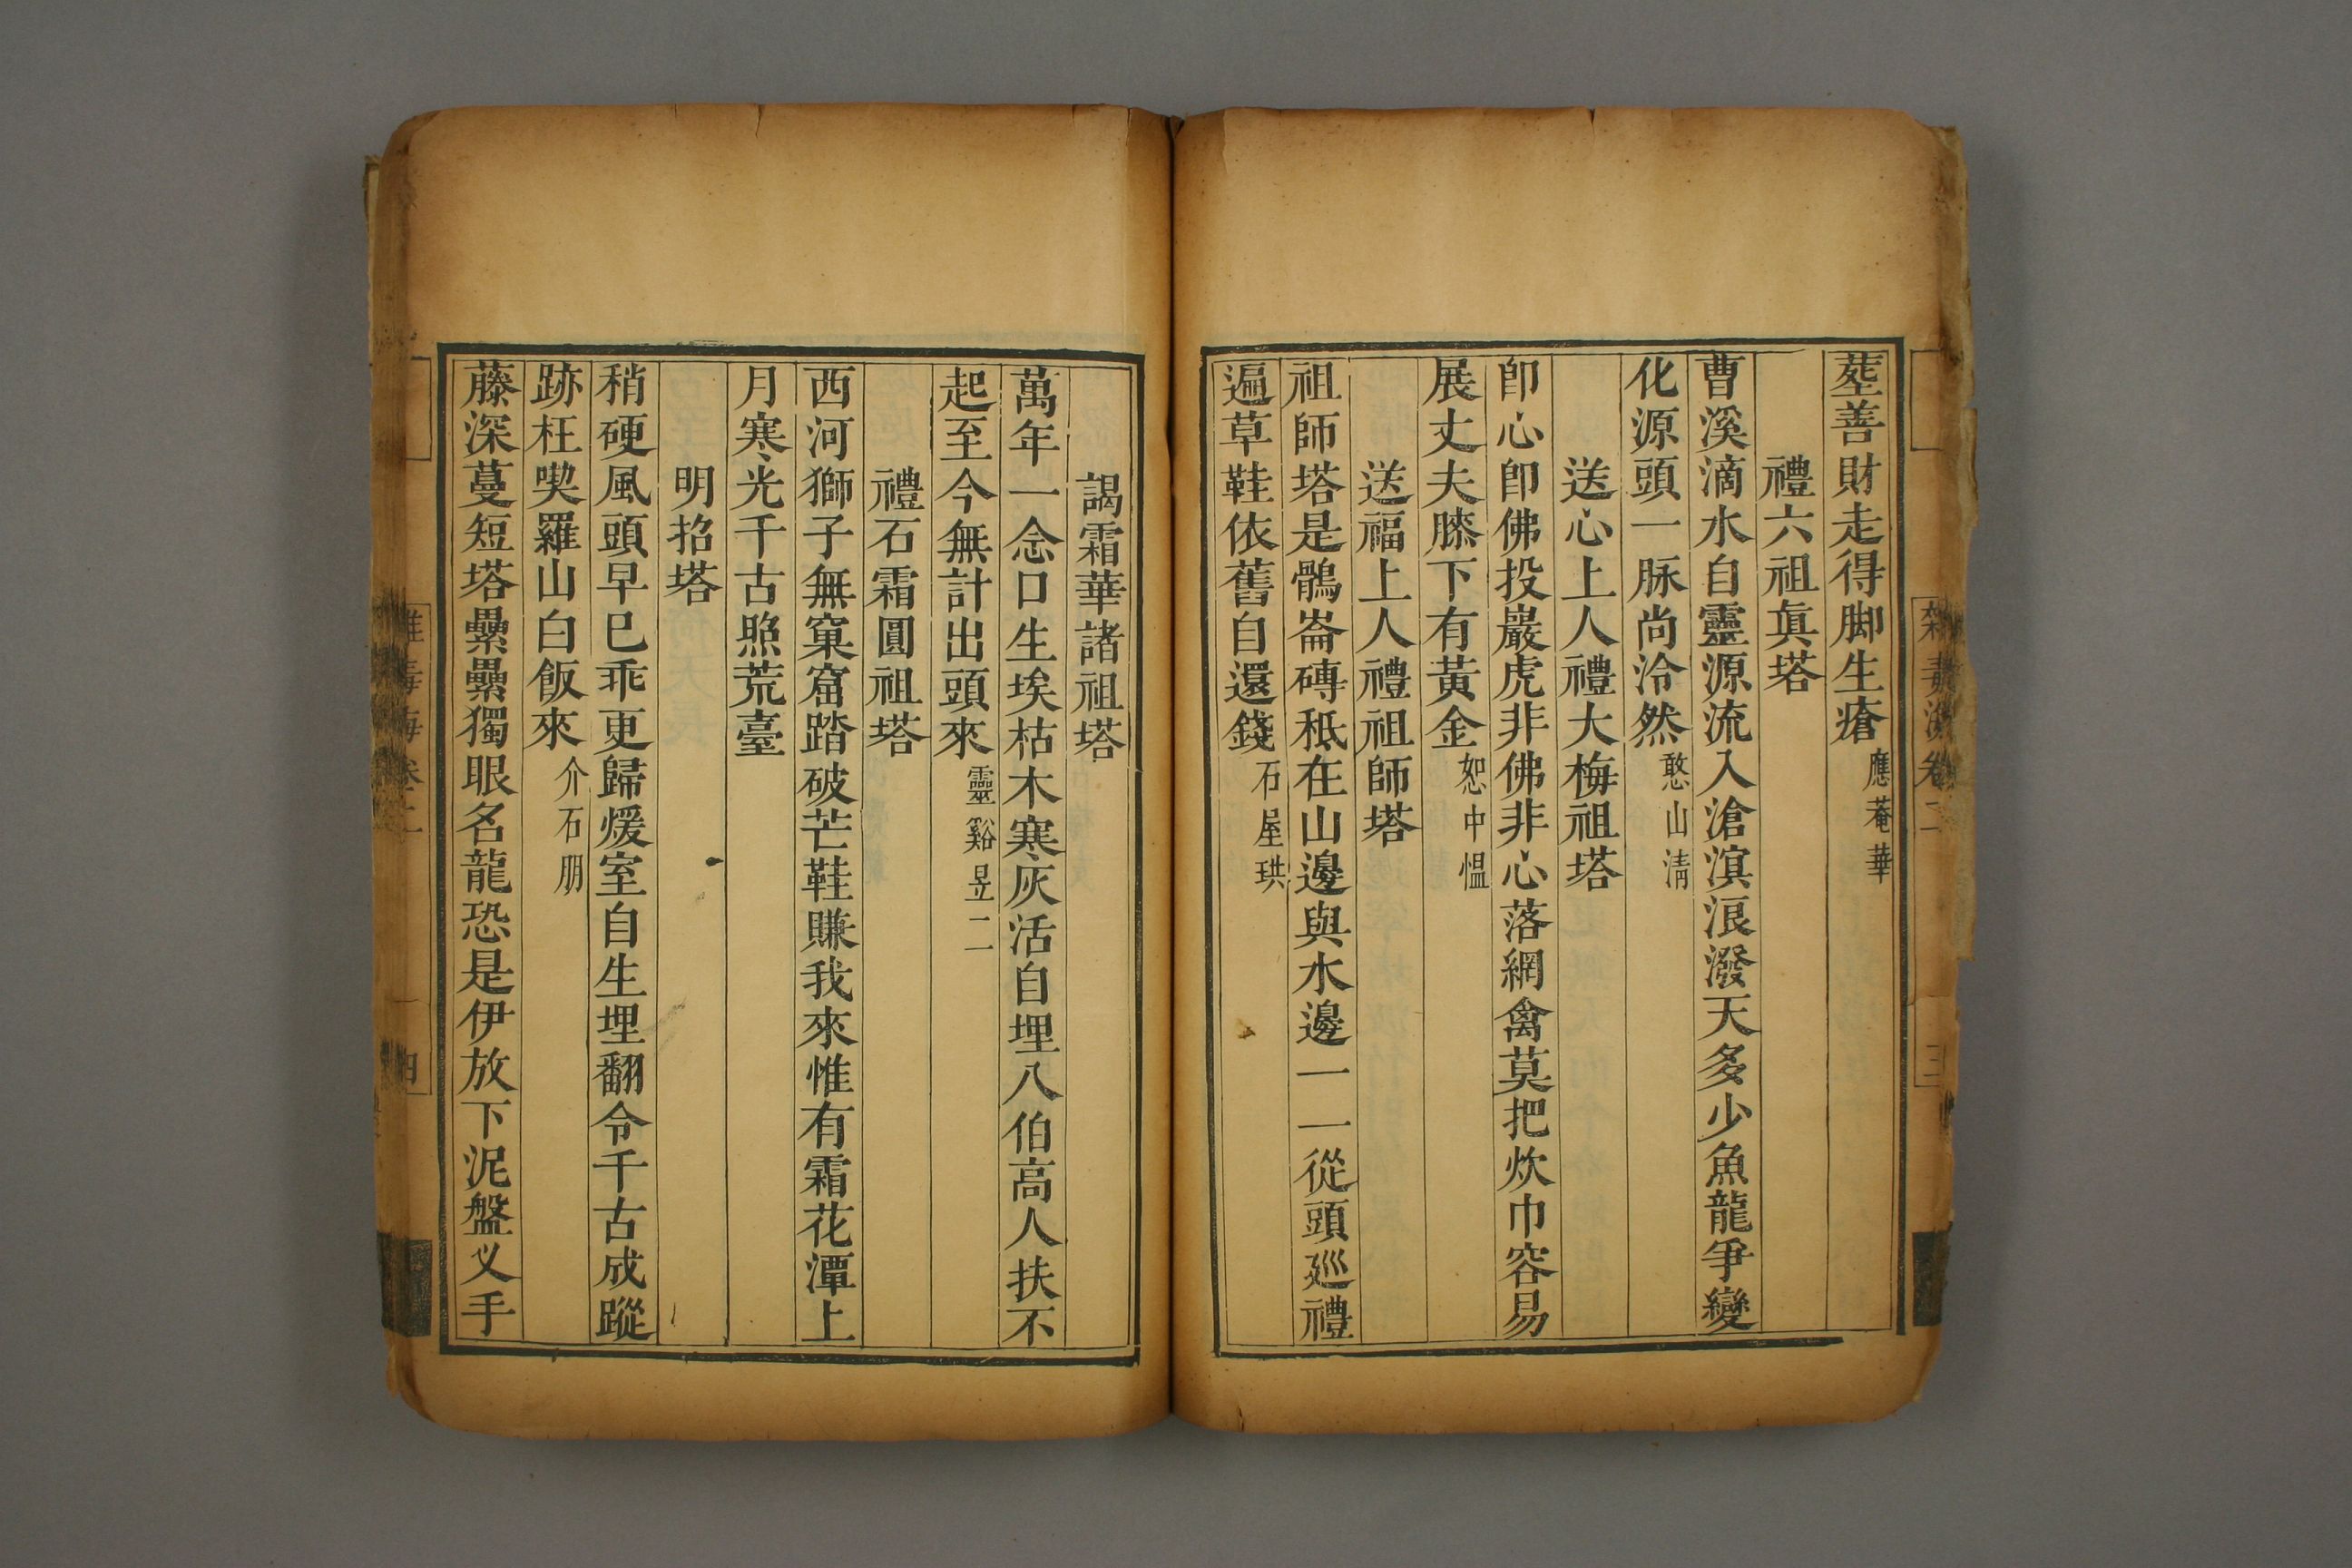 葬善財走得脚生瘡 應菴華
禮六祖眞塔
曹溪滴水自靈源流入滄溟浪潑天多少魚龍爭變
化源頭一脉尚泠然 憨山清
送心上人禮大梅祖塔
卽心卽佛投巖虎非佛非心落網禽莫把炊巾容易
展丈夫膝下有黃金 恕中愠
送福上人禮祖師塔
祖師塔是鶻崙磚秪在山邊與水邊一一從頭廵禮
遍草鞋依舊自還錢 石屋珙
謁霜華諸祖塔
萬年一念口生埃枯木寒灰活自埋八伯高人扶不
起至今無計出頭來 靈谿昱二
禮石霜圓祖塔
西河獅子無窠窟踏破芒鞋賺我來惟有霜花潭上
月寒光千古照荒臺
明招塔
稍硬風頭早已乖更歸煖室自生埋翻令千古成蹤
跡枉喫羅山白飯來 介石朋
藤深蔓短塔纍纍獨眼名龍恐是伊放下泥盤义手
雜毒海卷二
三
雜毒海卷二
四